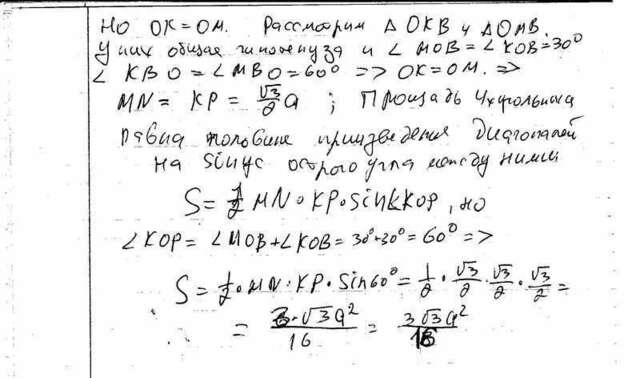 Но OK=OM. Рассмотрим △ OKB и △OMB.
У них общая гипотенуза и ∠ MOB=∠ KOB=30°
∠ KBO=∠MBO=60° => OK=OM. =>
MN= KP= √3/2 a ; Площадь 4хугольника
равна половине произведения диагоналей
на sinус острого угла между ними
S= 1/2 MN·KP·Sin∠KOP, но
∠KOP= ∠MOB+∠KOB= 30°+30°=60° =>
S= 1/2·MN·KP·Sin60°= 1/2 · √3/2 · √3/2 · √3/2 =
= 3·√3a²/16 = 3√3a²/16